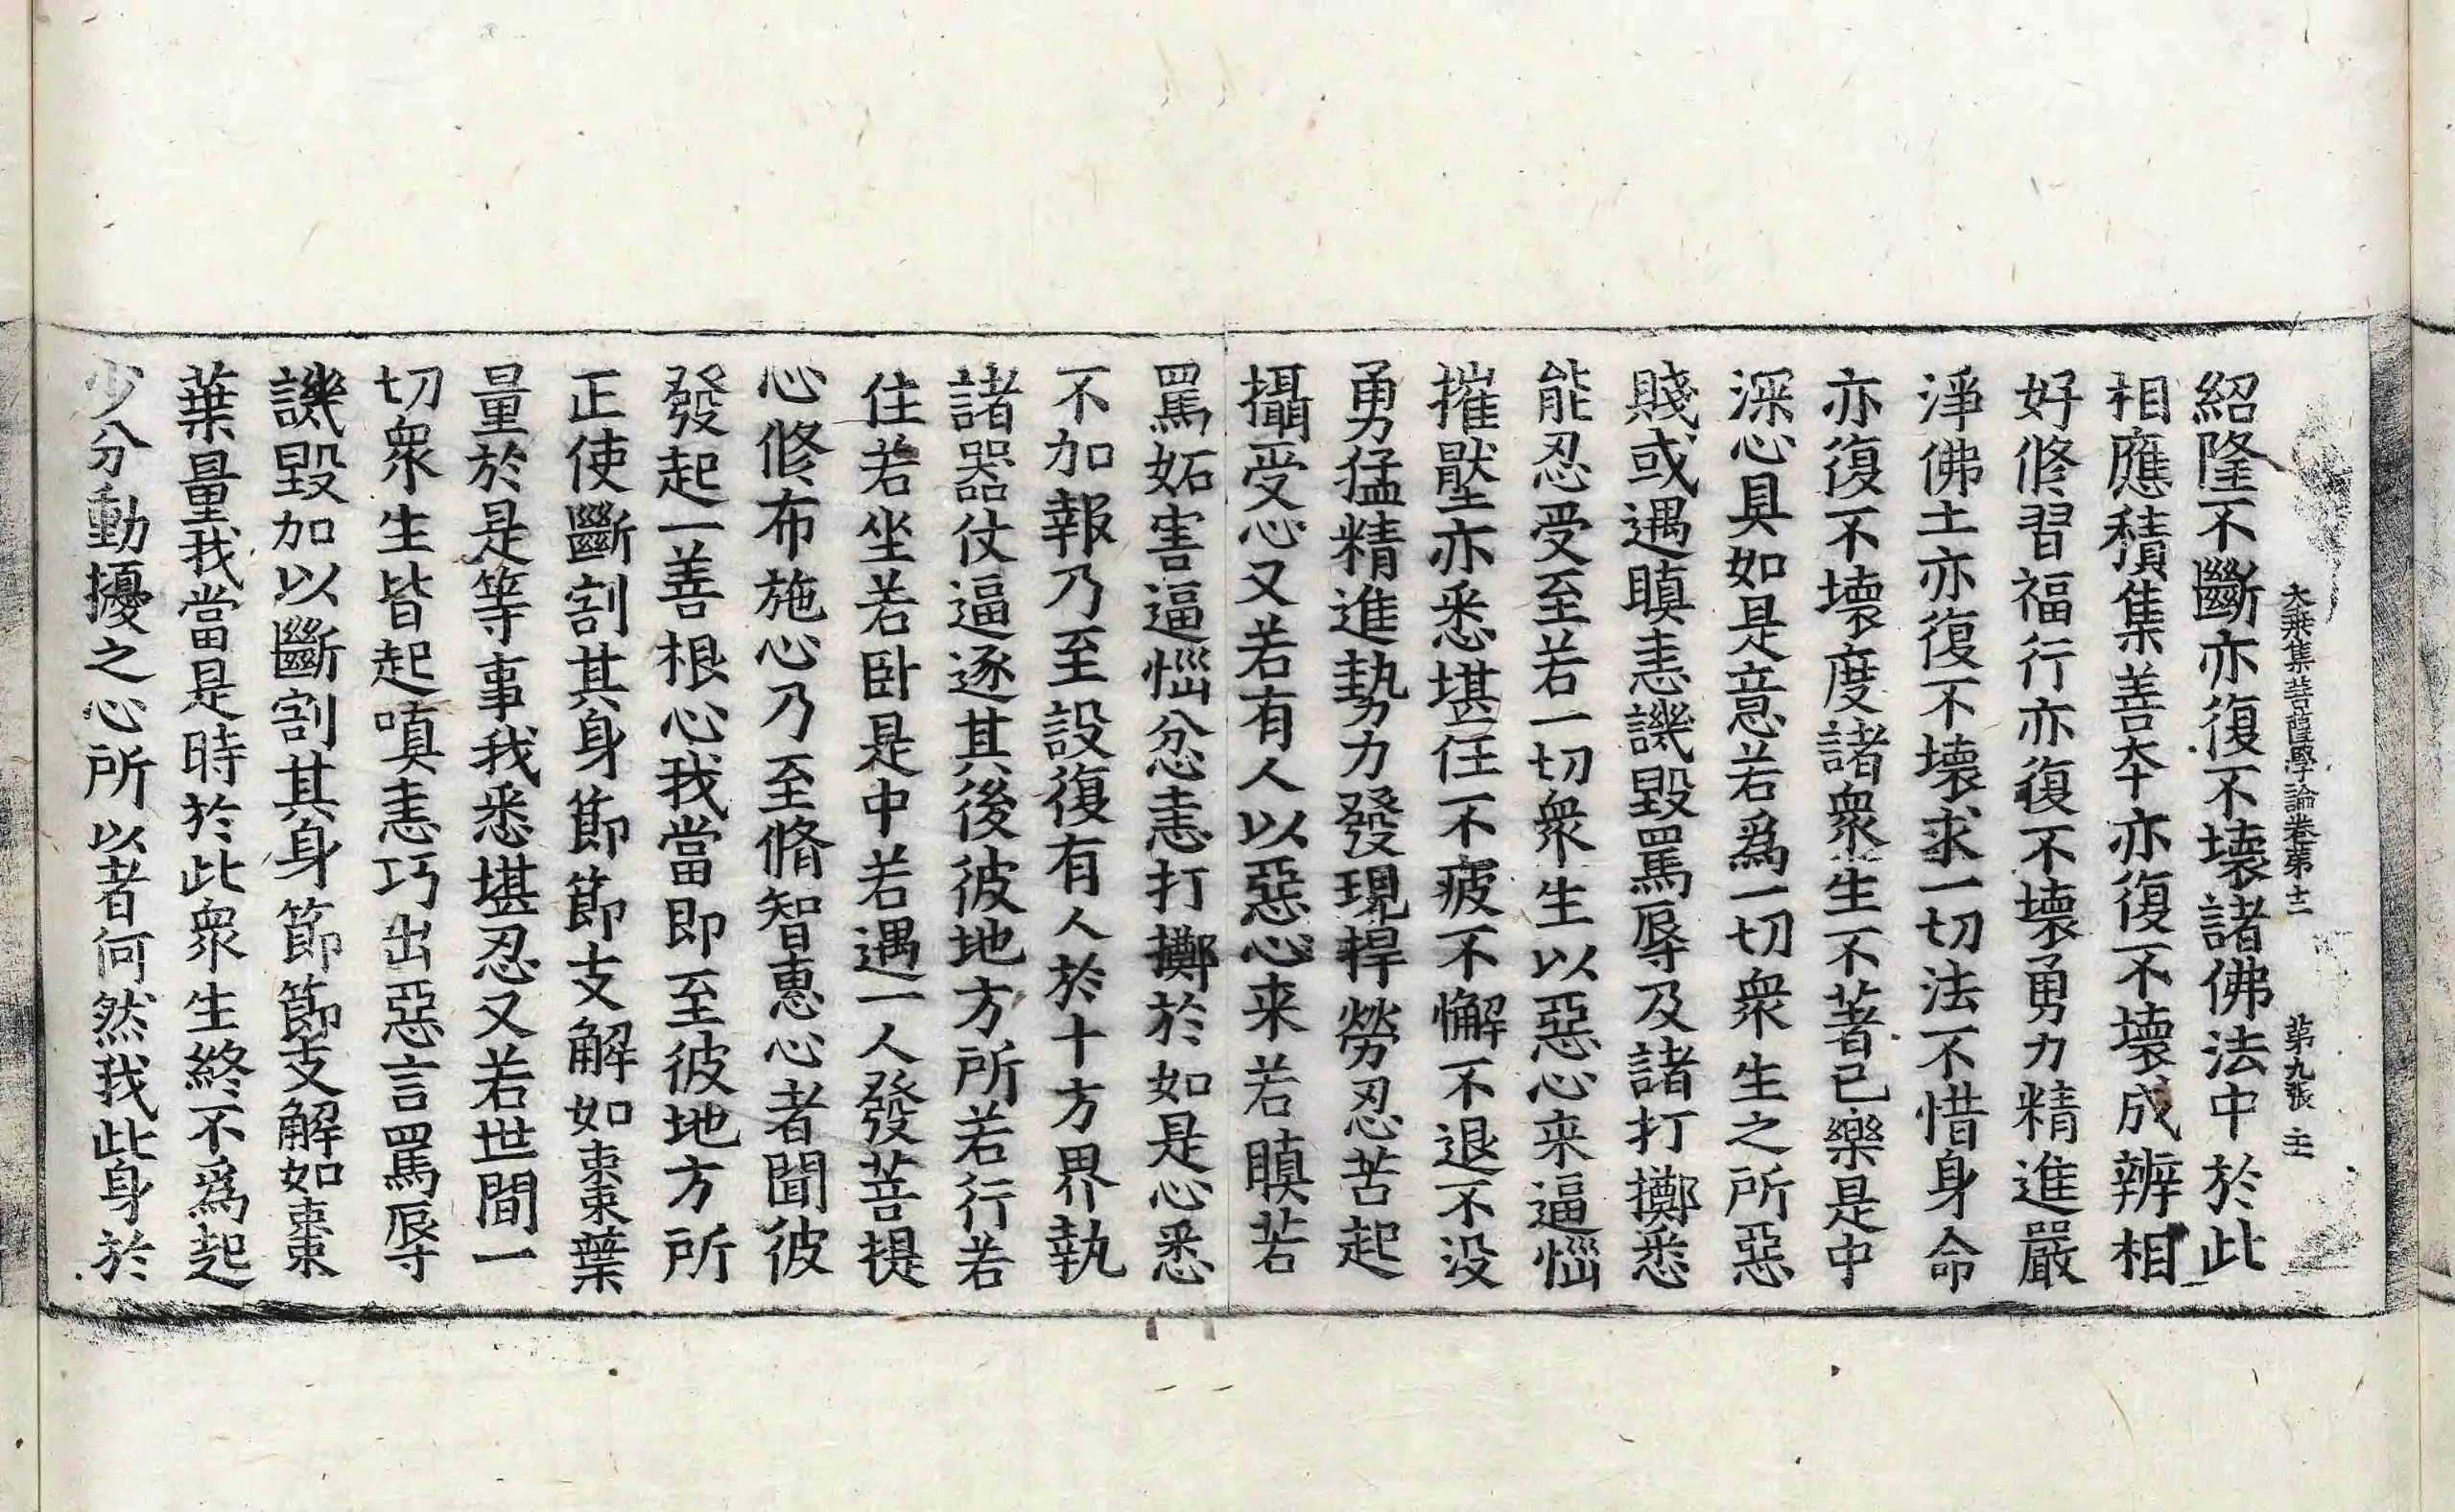 大乘集菩薩學論卷第十二 第九張 主
紹隆不斷亦復不壞諸佛法中於此
相應積集善夲亦復不壞成辨相
好修習福行亦復不壞勇力精進嚴
淨佛土亦復不壞求一切法不惜身命
亦復不壞度諸衆生不著己樂是中
深心具如是意若爲一切衆生之所惡
賤或遇瞋恚譏毀罵辱及諸打擲悉
能忍受至若一切衆生以惡心来逼惱
摧壓亦悉堪任不疲不懈不退不没
勇猛精進勢力發現捍勞忍苦起
攝受心又若有人以惡心来若瞋若
罵妬害逼惱忿恚打擲於如是心悉
不加報乃至設復有人於十方界執
諸器仗逼逐其後彼地方所若行若
住若坐若卧是中若遇一人發菩提
心修布施心乃至脩智惠心者聞彼
發起一善根心我當即至彼地方所
正使斷割其身節節支解如棗葉
量於是等事我悉堪忍又若世間一
切衆生皆起嗔恚巧出惡言罵辱
譏毀加以斷割其身節節支解如棗
葉量我當是時於此衆生終不爲起
少分動擾之心所以者何然我此身於